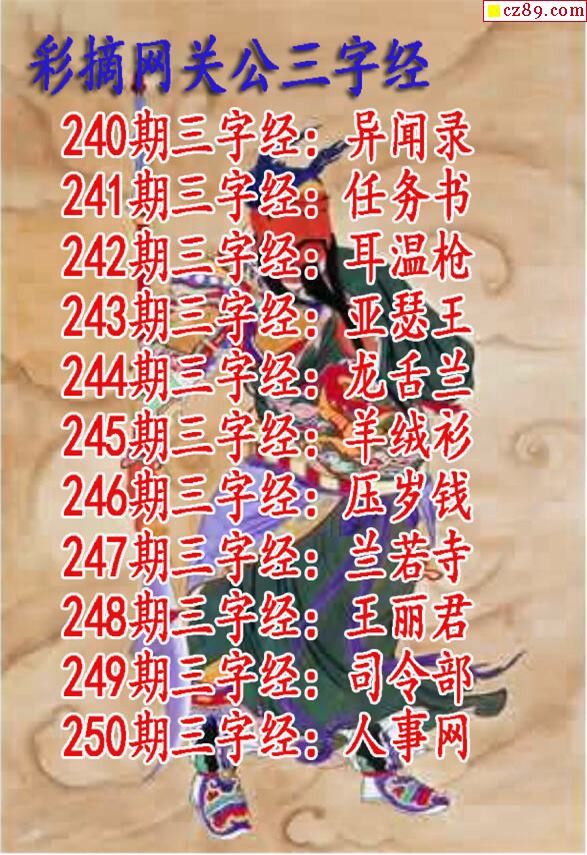 cz89.com
彩摘网关公三字经
240期三字经：异闻录
241期三字经：任务书
242期三字经：耳温枪
243期三字经：亚瑟王
244期三字经：龙舌兰
245期三字经：羊绒衫
246期三字经：压岁钱
247期三字经：兰若寺
248期三字经：王丽君
249期三字经：司令部
250期三字经：人事网